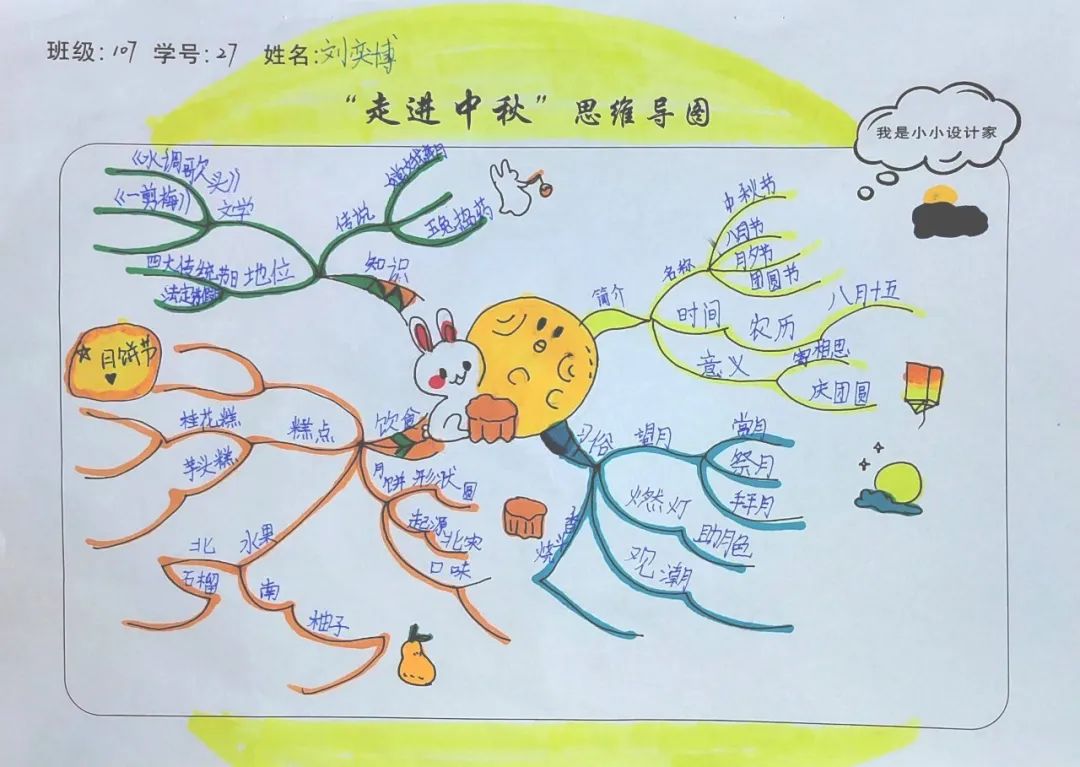 班级:107 学号:27 姓名:刘奕博
“走进中秋”思维导图
我是小小设计家
简介
名称
中秋节
八月节
月夕节
团圆节
时间
农历
八月十五
意义
寄相思
庆团圆
习俗
望月
赏月
祭月
拜月
燃灯
助月色
观潮
烧斗香
饮食
月饼
形状
圆
起源
北宋
口味
糕点
桂花糕
芋头糕
水果
北
石榴
南
柚子
月饼节
知识
传说
嫦娥奔月
玉兔捣药
文学
《水调歌头》
《一剪梅》
地位
四大传统节日
法定假日